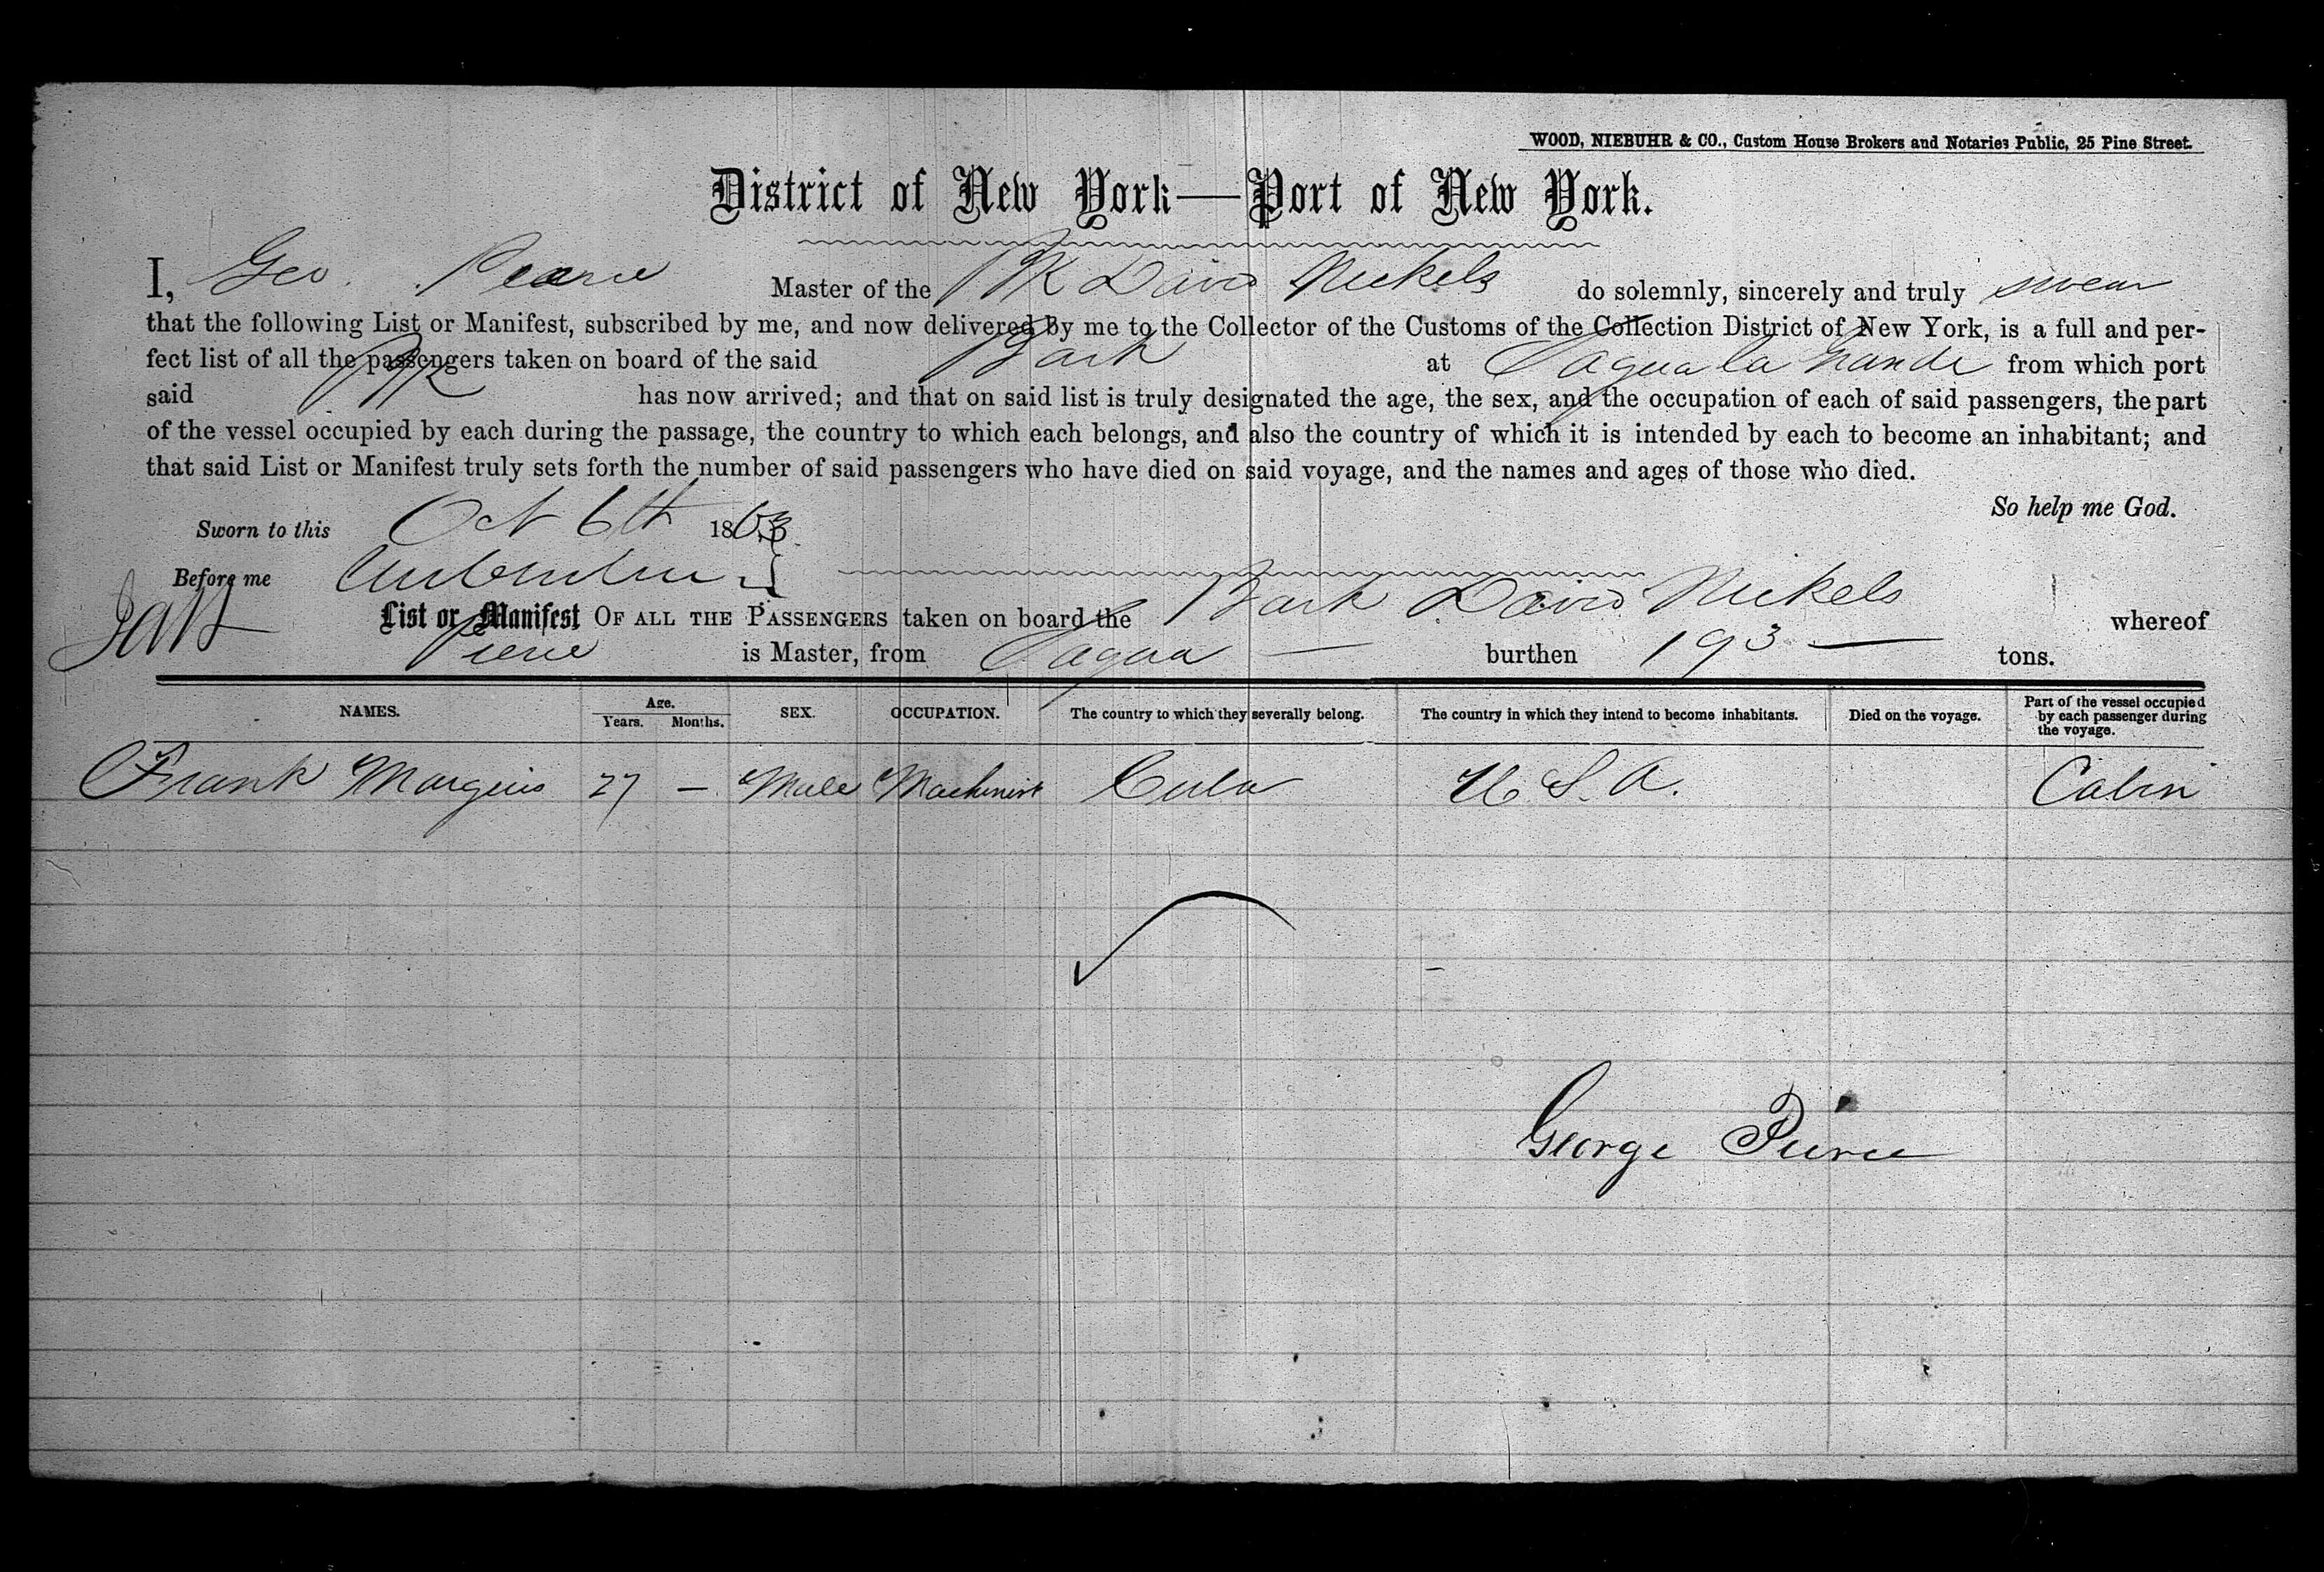 WOOD, NIEBUHR & CO., Custom House Brokers and Notaries Public, 25 Pine Street.
District of New York—Port of New York.
I, Geo. Pearce Master of the BK David Nickels do solemnly, sincerely and truly swear
that the following List or Manifest, subscribed by me, and now delivered by me to the Collector of the Customs of the Collection District of New York, is a full and per-
fect list of all the passengers taken on board of the said Bark at Sagua la Grande from which port
said BK has now arrived; and that on said list is truly designated the age, the sex, and the occupation of each of said passengers, the part
of the vessel occupied by each during the passage, the country to which each belongs, and also the country of which it is intended by each to become an inhabitant; and
that said List or Manifest truly sets forth the number of said passengers who have died on said voyage, and the names and ages of those who died.
So help me God.
Sworn to this Oct 6th 1863
Before me
List or Manifest OF ALL THE PASSENGERS taken on board the Bark David Nickels whereof
Pierce is Master, from Sagua — burthen 193 — tons.
NAMES. Age. Years. Months. SEX. OCCUPATION. The country to which they severally belong. The country in which they intend to become inhabitants. Died on the voyage. Part of the vessel occupied by each passenger during the voyage.
Frank Marquis 27 — Male Machinist Cuba U.S.A. Cabin
George Pierce